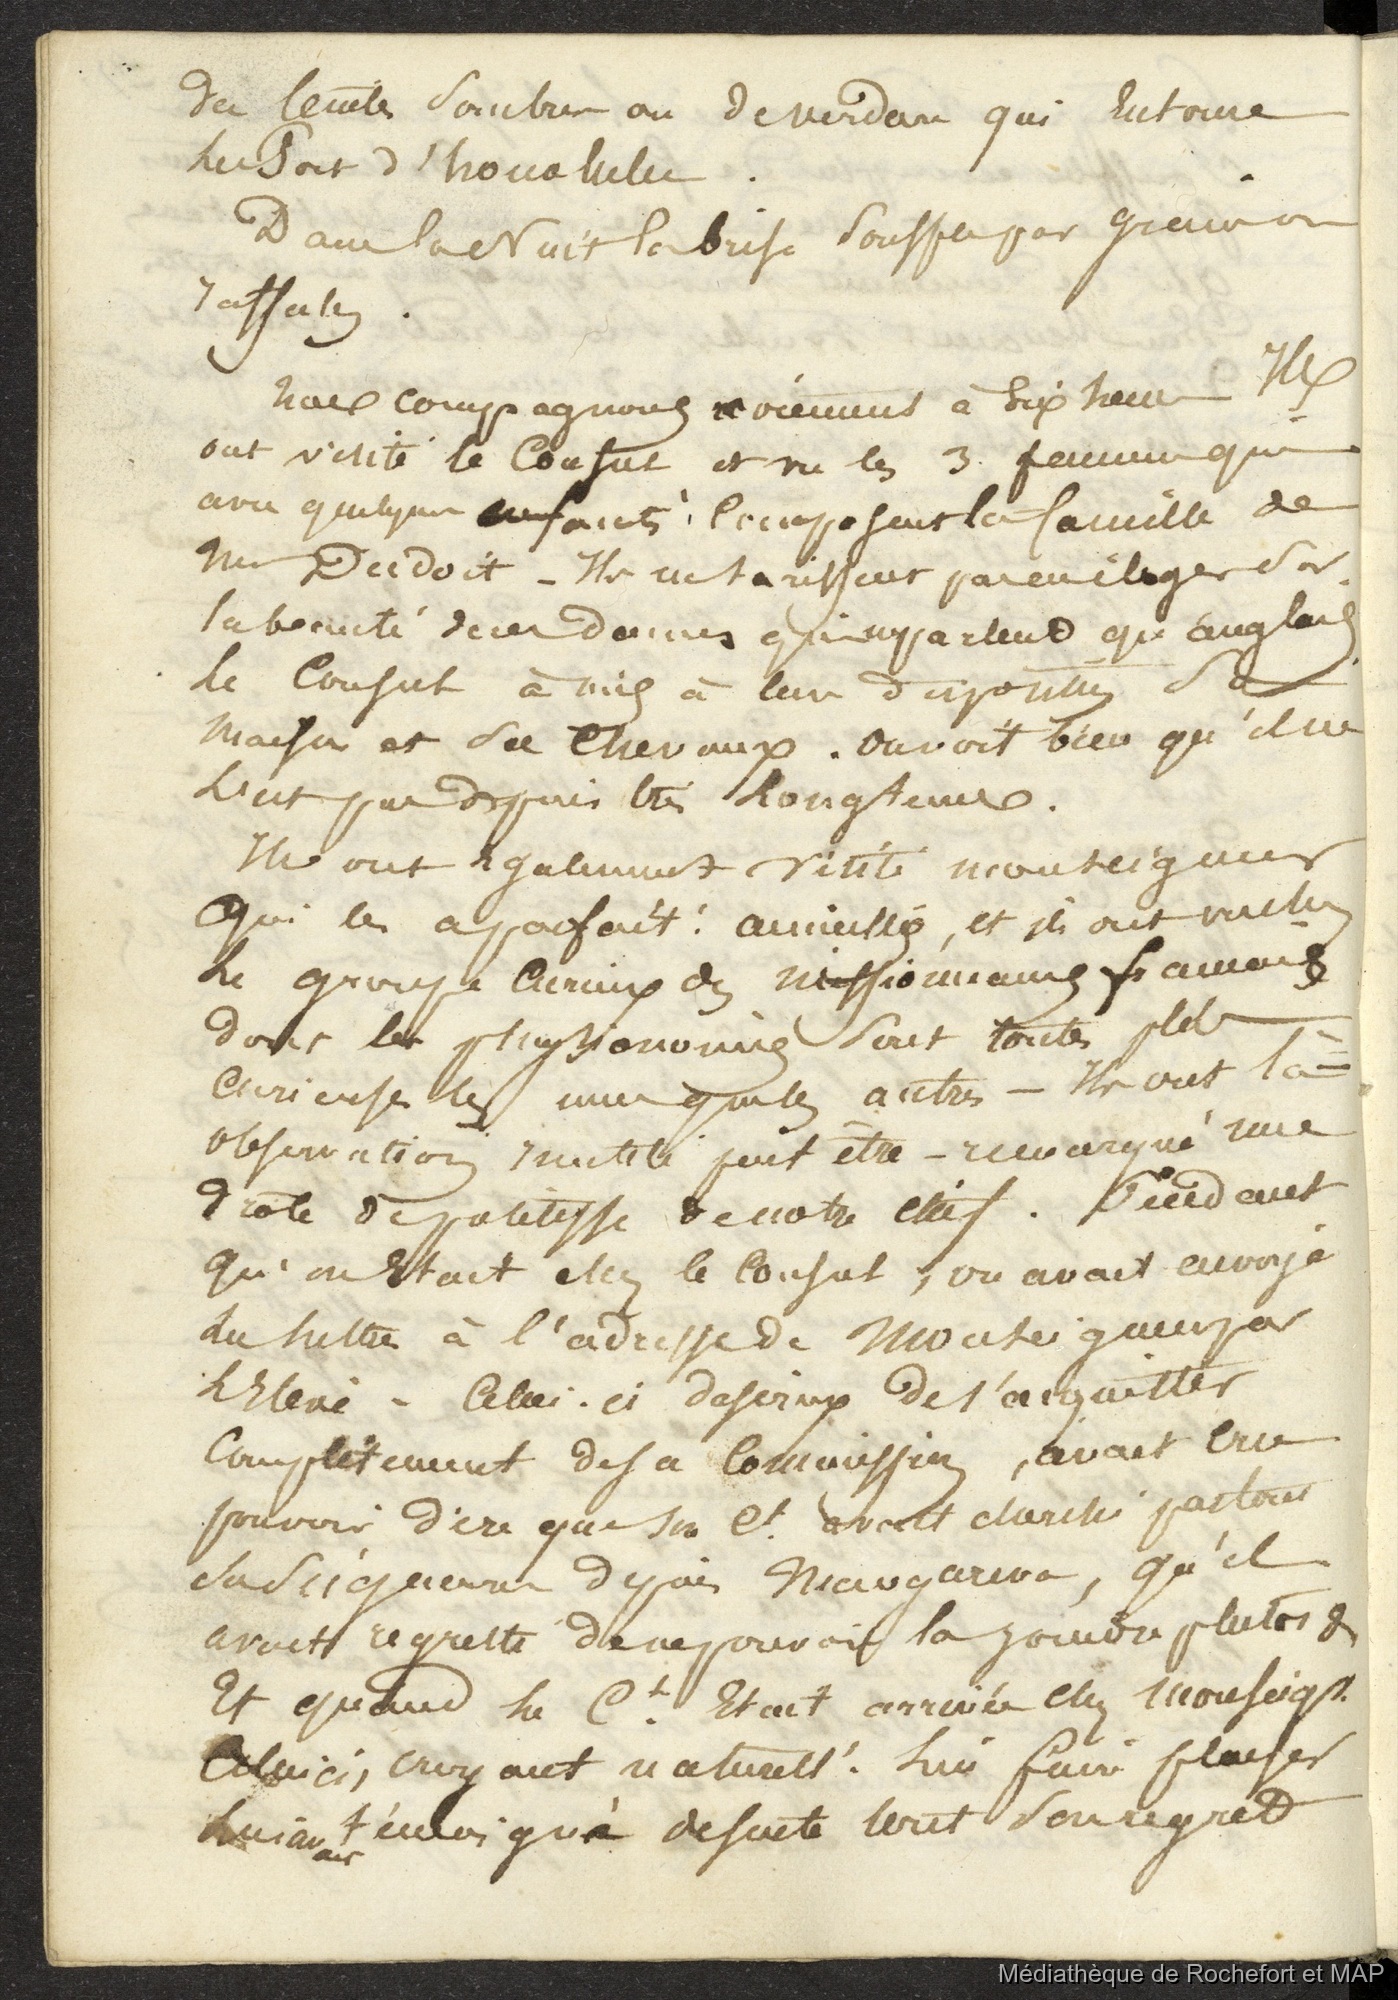 des teintes sombres ou de verdure qui entoure
le Port d'honolulu.
Dans la Nuit la brise souffle par grains ou
raffales.
Nos compagnons reviennent à six heures Ils
ont visité le Consul et vu les 3 femmes qui
avec quelques enfants composent la famille de
Mr Dudoit - Ils ne tarissent pas en éloges sur
la beauté de ces dames qui ne parlent qu'anglais
le Consul à mis à leur dispositions sa
maison et ses chevaux. on voit bien qu'il ne
l'est pas depuis très longtems.
Ils ont également visité monseigneur
qui les a parfait.t accueillis, et ils ont vu chez
lui le groupe curieux des missionnaires français
dont les physionomies sont toutes plus
curieuses les unes que les autres - Ils ont là -
observation inutile peut être - remarqué une
drôle de politesse de notre chef. Pendant
qu'on Etait chez le Consul, on avait envoyé
les lettres à l'adresse de Monseigneur par
l'Elève - Celui-ci desireux de s'acquitter
complètement de sa Commission, avait cru
pouvoir dire que son Ct. avait cherché partout
sa Seigneurie depuis Mangareva, qu'il
avait regretté de ne pouvoir la joindre plutôt &
Et quand le Ct. Etait arrivée chez Monseigr.
Celui ci, croyant naturellt. lui faire plaisir
lui avait témoigné de suite tout son regret